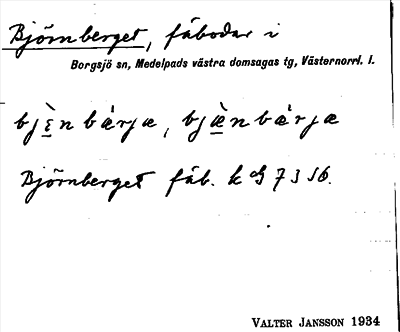 Björnberget, fäbodar i
Borgsjö sn, Medelpads västra domsagas tg, Västernorrl. l.
bjè̱n bǽrjæ, bjæ̱̀n bǽrjæ
Björnberget fäb.
VALTER JANSSON 1934